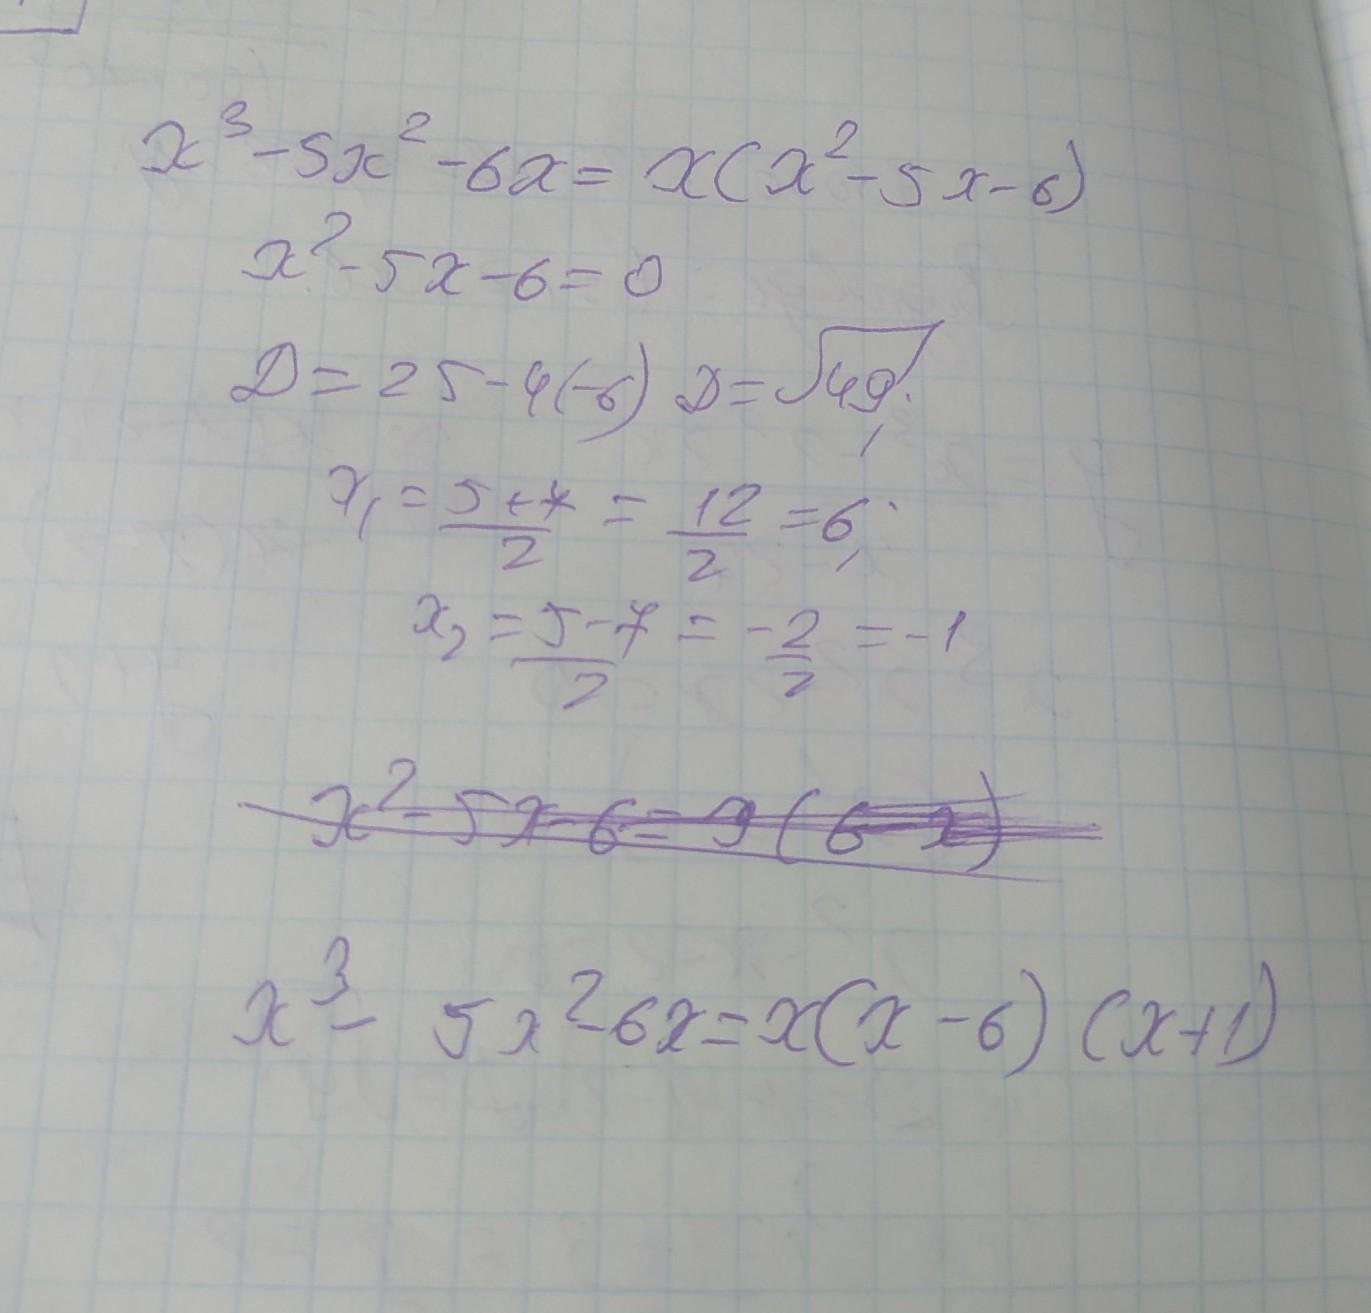 x³-5x²-6x=x(x²-5x-6)
x²-5x-6=0
D=25-4(-6) D=√49;
x₁=(5+7)/2=12/2=6;
x₂=(5-7)/2=-2/2=-1
x³-5x²-6x=x(x-6)(x+1)